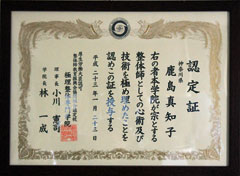 認定証
神奈川県
鹿島真知子
右の者本学院が示とする
整体師としての心術及び
技術を極め埋めたことを
認めこの証を授与する
平成二十三年一月二十三日
極理整体専門学院
理事長 小川憲司
学院長 林一成